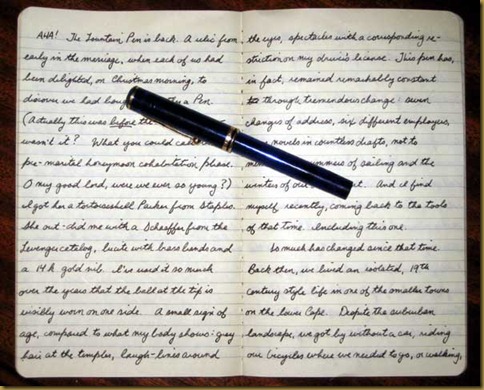 AHA! The Fountain Pen is back. A relic from
early in the marriage, when each of us had
been delighted, on Christmas morning, to
discover we had a Pen
(Actually this was before the
wasn't it? What you could call
pre-marital honeymoon cohabitation phase.
O my good lord, were we ever so young?)
I got her a tortoiseshell Parker from Staples.
She out-did me with a Schaeffer from the
Levenger catalog, lucite with brass bands and
a 14k gold nib. I've used it so much
over the years that the ball at the tip is
visibly worn on one side. A small sign of
age, compared to what my body shows: gray
hair at the temples, laugh-lines around
the eyes, spectacles with a corresponding re-
striction on my driver's license. This pen has,
in fact, remained remarkably constant
through tremendous change: seven
changes of address, six different employers,
novels in countless drafts, not to
summers of sailing and the
winters of our And I find
myself, recently, coming back to the tools
of that time. Including this one.
So much has changed since that time.
Back then, we lived an isolated, 19th
century style life in one of the smaller towns
on the lower Cape. Despite the suburban
landscape, we got by without a car, riding
our bicycles where we needed to go, or walking,